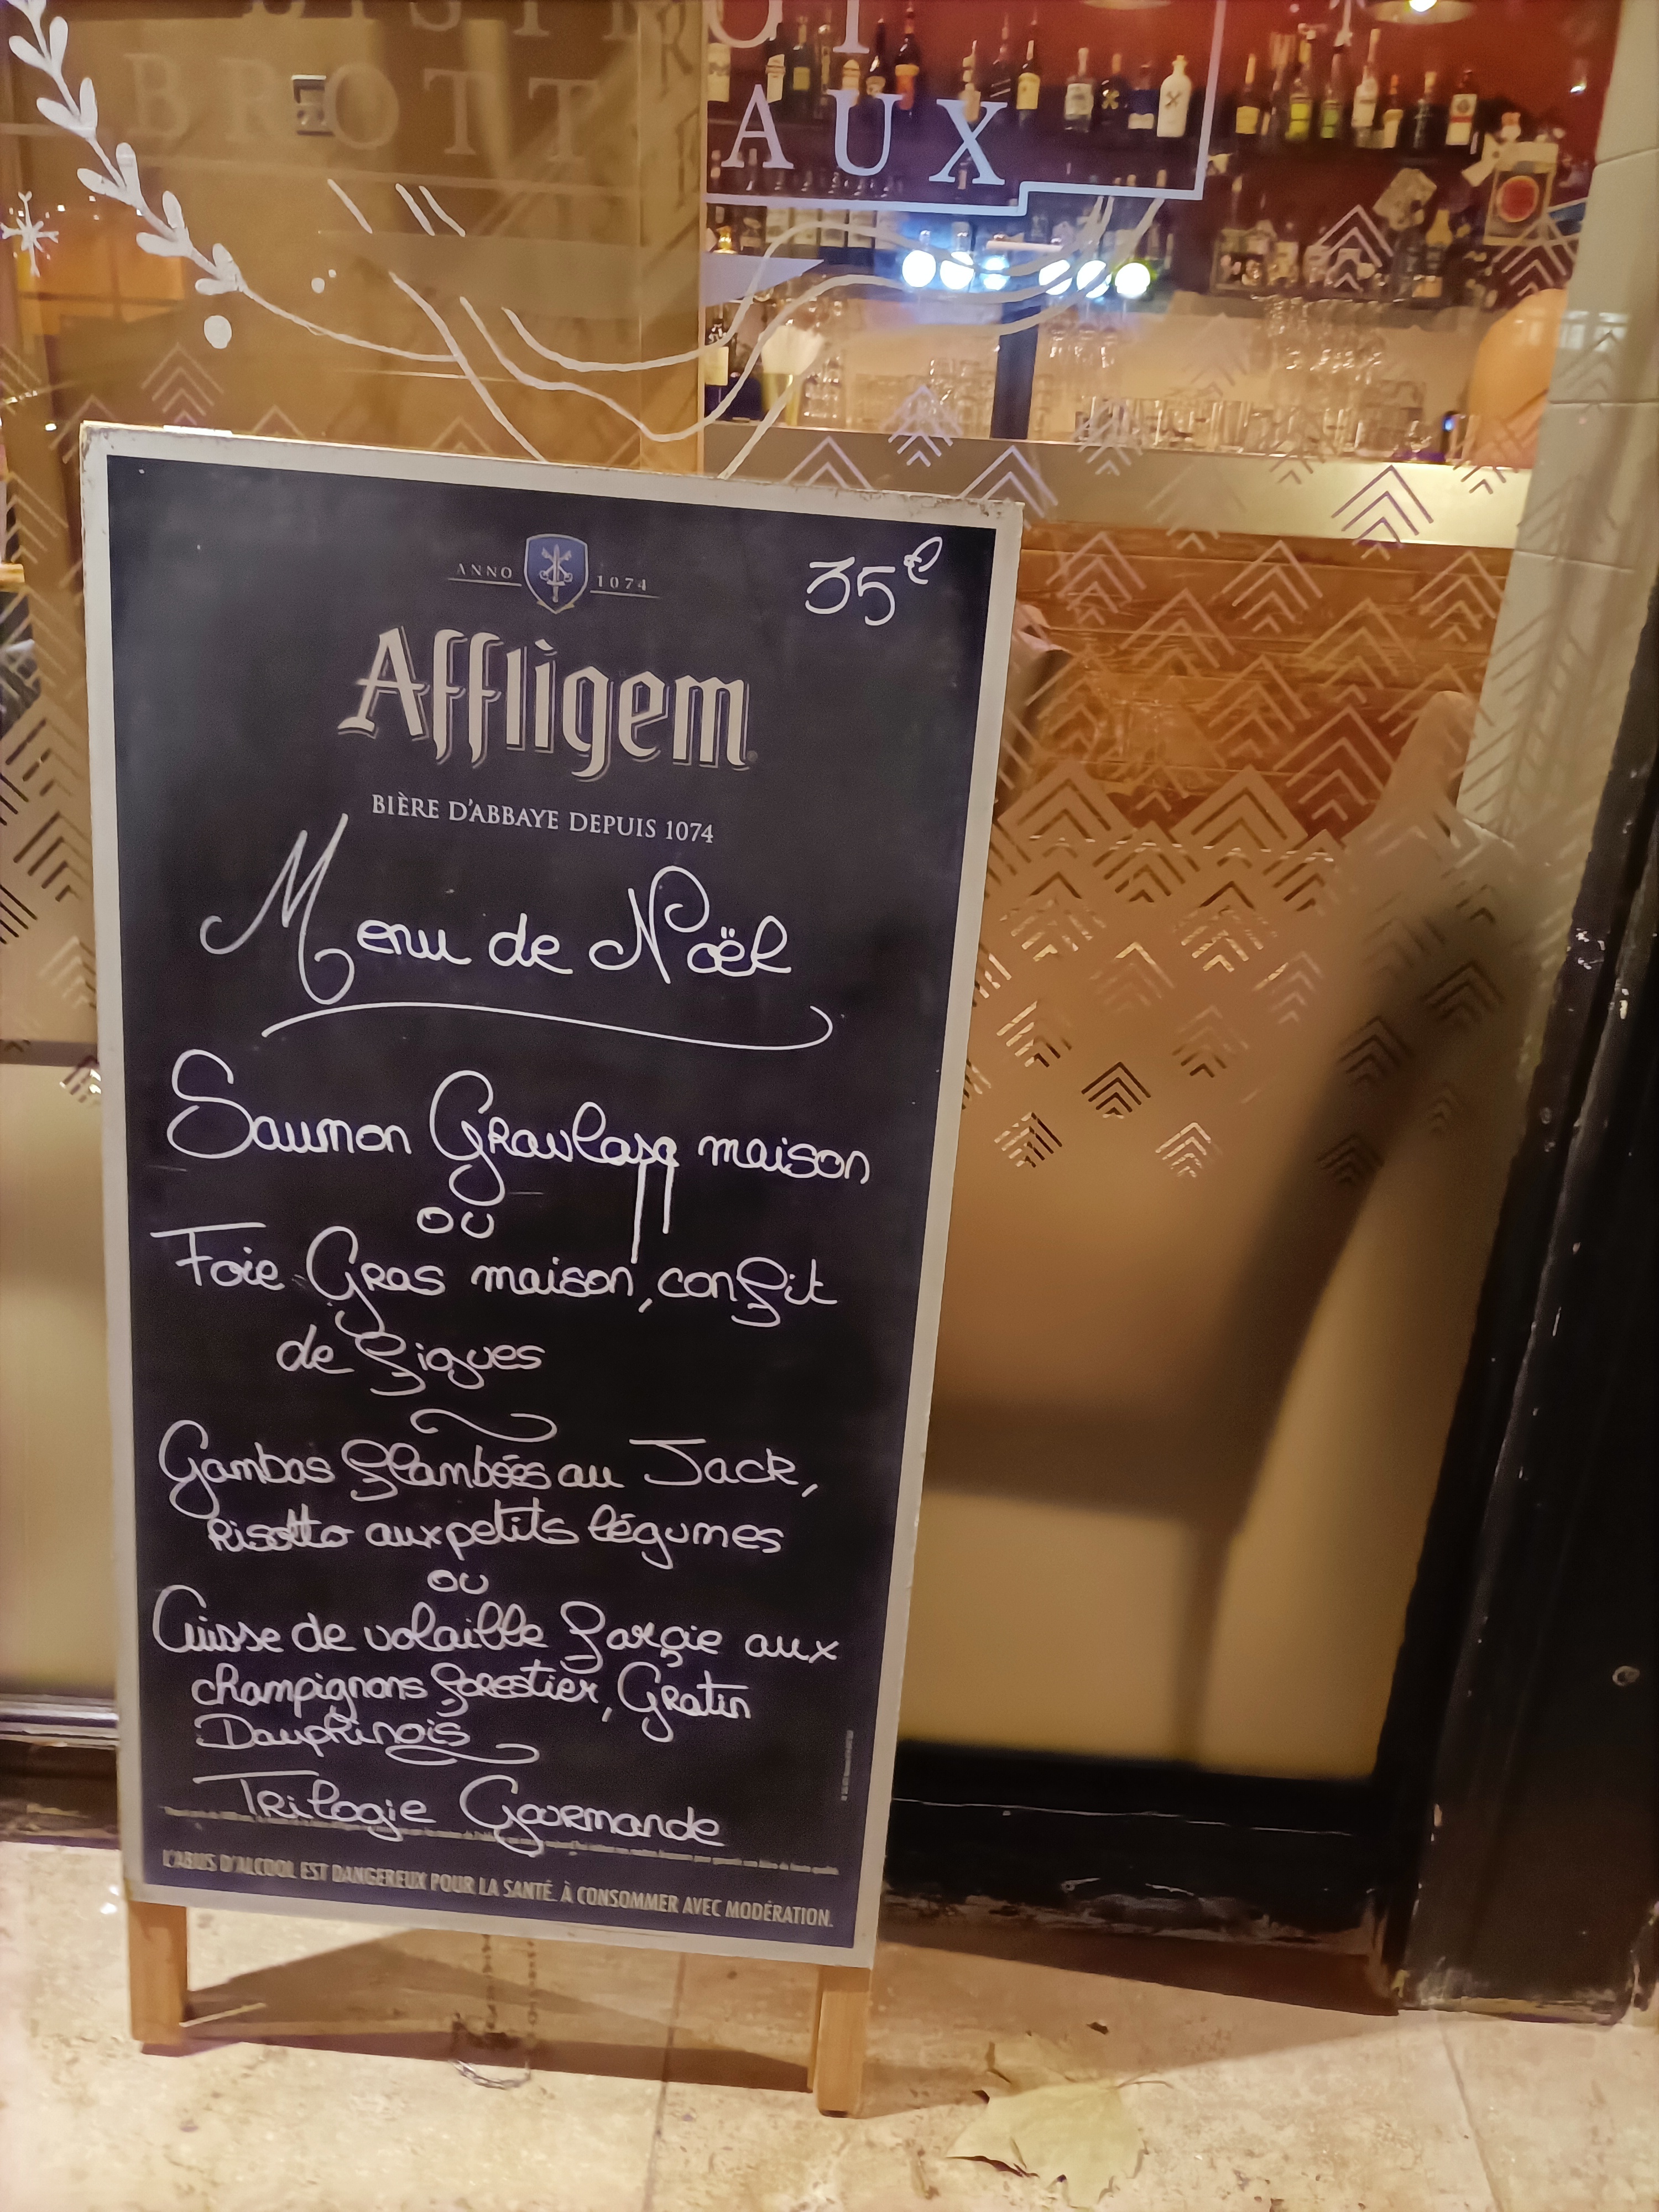 BISTROT
BROTTEAUX
ANNO 1074
35€
Affligem
BIÈRE D'ABBAYE DEPUIS 1074
Menu de Noël
Saumon Gravlaqq maison
ou
Foie Gras maison, confit
de figues
Gambas flambées au Jack,
Risotto aux petits légumes
ou
Cuisse de volaille farçie aux
champignons forestier, Gratin
Dauphinois
Trilogie Gourmande
L'ABUS D'ALCOOL EST DANGEREUX POUR LA SANTÉ. À CONSOMMER AVEC MODÉRATION.